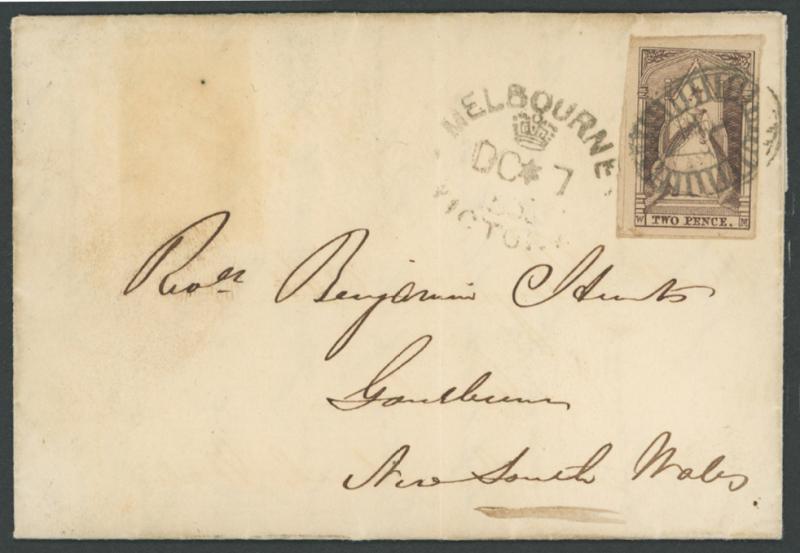 MELBOURNE
DC * 7
VICTORIA
W TWO PENCE. M
Revd Benjamin Hurst
Goulburn
New South Wales